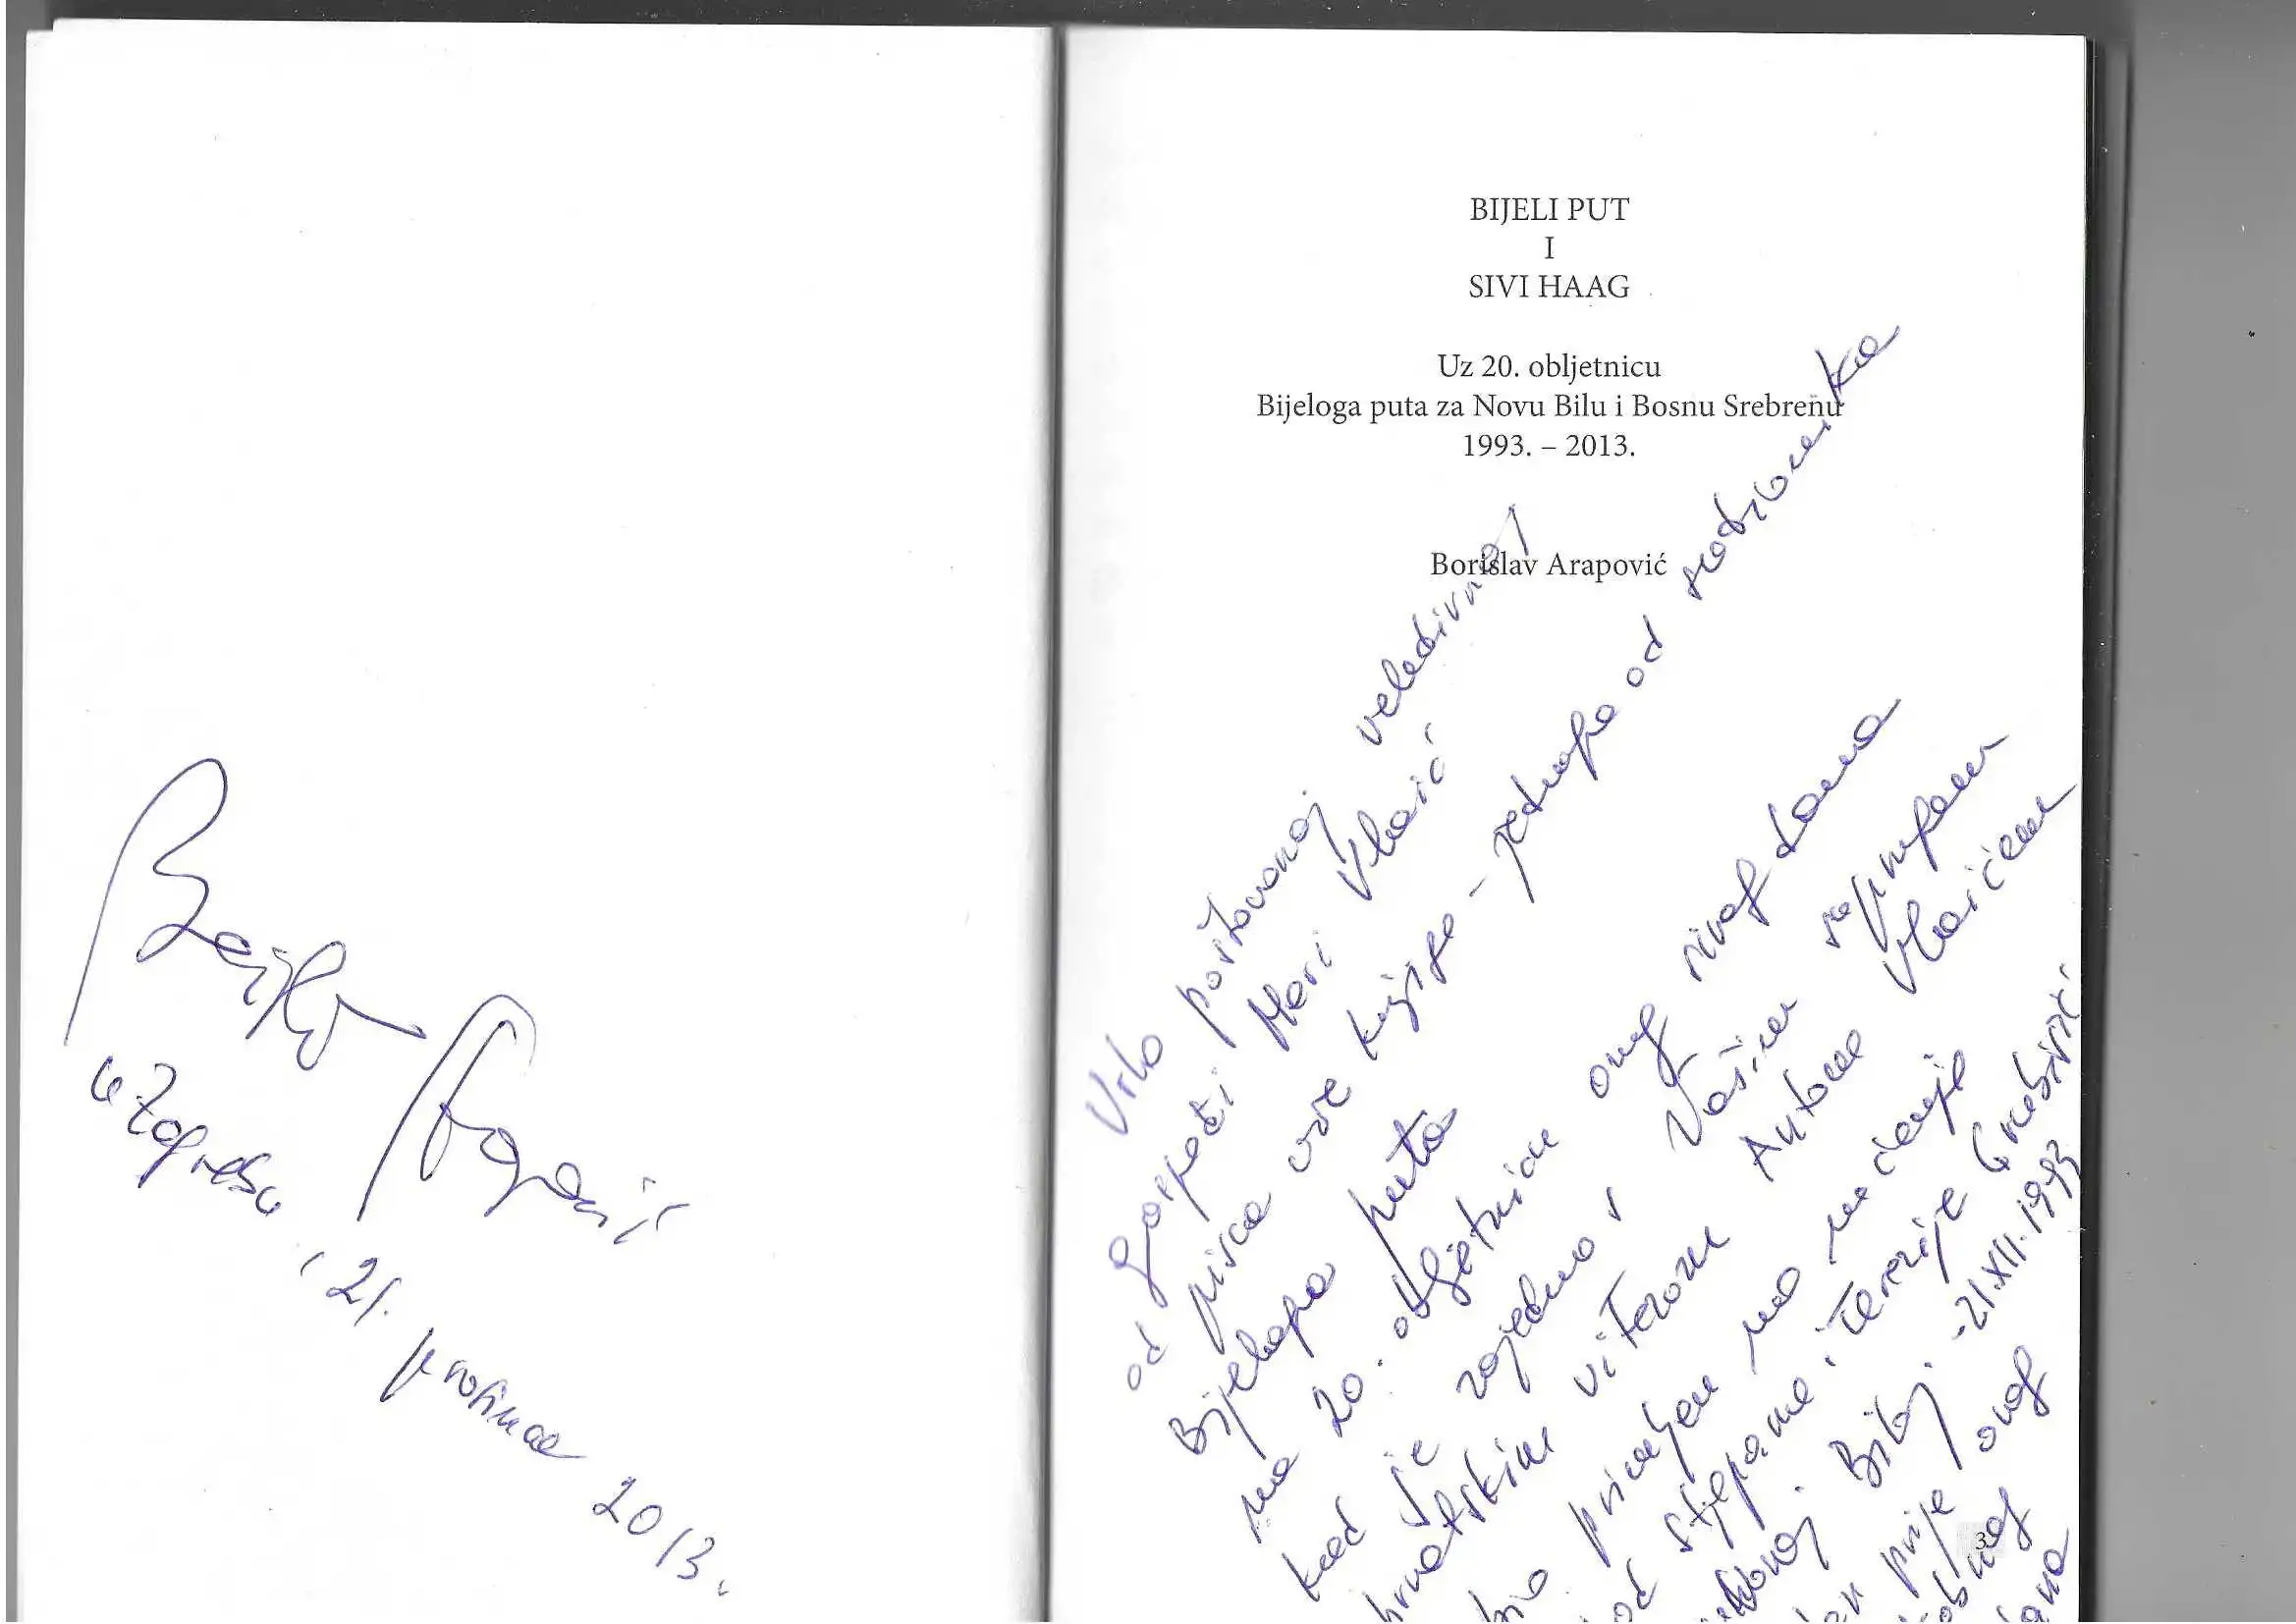 u Zagrebu, 21. prosinca 2013.
BIJELI PUT
I
SIVI HAAG
Uz 20. obljetnicu
Bijeloga puta za Novu Bilu i Bosnu Srebrenu
1993. – 2013.
Borislav Arapović
Vrlo poštovanoj veledivnoj
gospođi Meri Vlaić
od pisca ove knjige - jednoga od sudionika
Bijeloga puta
na 20. obljetnicu onog sivog dana
kad je zajedno s Vašim suprugom
hrvatskim vitezom Antom Vlaićem
bio primljen na noćenje
od Stjepana i Terezije Grebišić
Biloj. - 21.XII.1993
prije onog
3